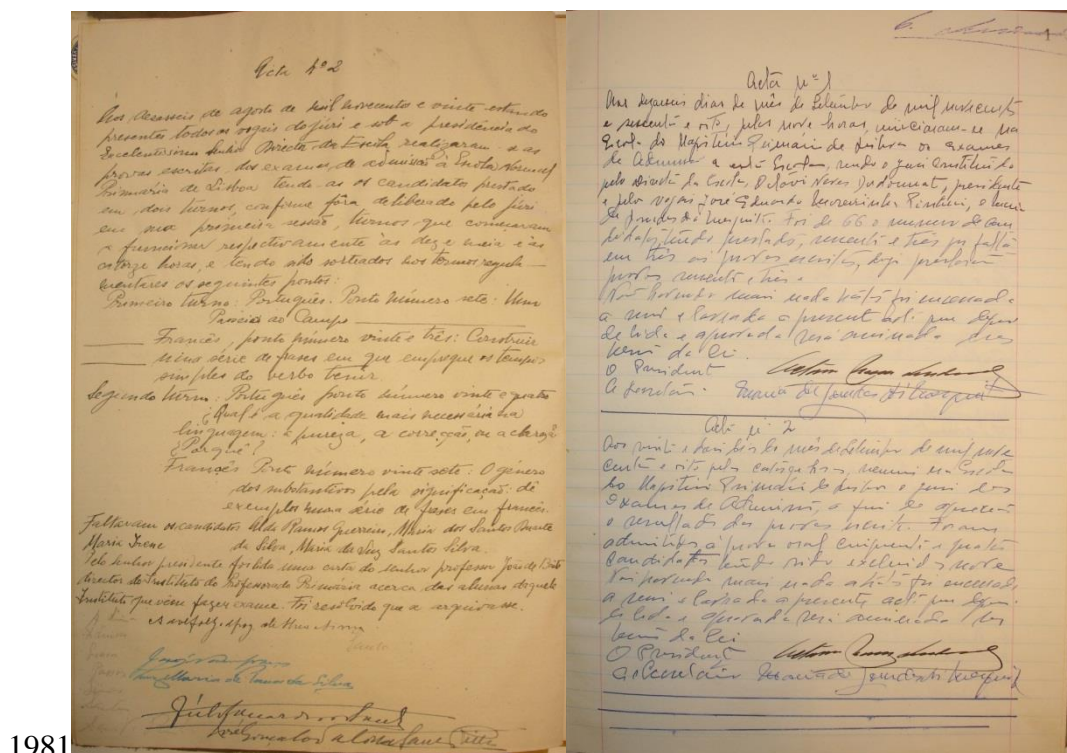 Acta Nº 2
Aos dezasseis de agosto de mil novecentos e vinte estando
presentes todos os vogais do júri e sob a presidência do
Excelentíssimo Senhor Director da Escola, realizaram-se as
provas escritas dos exames de admissão à Escola Normal
Primária de Lisboa tendo-as os candidatos prestado
em dois turnos, conforme fôra deliberado pelo júri
em sua primeira sessão, turnos que começaram
a funcionar respectivamente às dez e meia e às
catorze horas, e tendo sido sorteados nos termos regula-
mentares os seguintes pontos:
Primeiro turno: Português. Ponto número sete: Um
Passeio ao Campo
Francês, ponto número vinte e três: Construir
uma série de frases em que empregue os tempos
simples do verbo tenir.
Segundo turno: Português ponto número vinte e quatro
¿Qual é a qualidade mais necessária na
linguagem: a pureza, a correcção, ou a clareza?
¿Porquê?
Francês Ponto número vinte sete: O género
dos substantivos pela significação: dê
exemplos numa série de frases em francês.
Faltaram os candidatos Ramos Guerreiro, Maria dos Santos
Maria Irene da Silva, Maria da Luz Santos Silva.
Pelo senhor presidente foi lida uma carta do senhor professor João de
director do Instituto do Professorado Primário acerca das alunas daquele
Instituto que vêm fazer exame. Foi resolvido que a arquivasse.
Maria de da Silva
Acta nº 1
Aos dezasseis dias do mês de Setembro de mil novecentos
e sessenta e oito, pelas nove horas, iniciaram-se na
Escola do Magistério Primário de Lisboa os exames
de Admissão a esta Escola, sendo o júri constituído
pelo Director da Escola, Octávio Neves Dordonnat, presidente
e pelos vogais José Eduardo Moreirinhas Pinheiro, e
de Lourdes Mesquita. Foi de 66 o número de can-
didatos, tendo prestado, sessenta e três por falta
em três as provas escritas,
provas sessenta e três.
Não havendo mais nada a tratar foi encerrada
a sessão e lavrada a presente acta que depois
de lida e aprovada será assinada nos
termos da lei.
O Presidente
A Secretária Maria de Lourdes
Acta nº 2
Aos vinte e dias do mês de Setembro de mil nove
centos e sessenta e oito pelas catorze horas, reuniu na Escola
do Magistério Primário de Lisboa o júri dos
Exames de Admissão, a fim de apreciar
o resultado das provas escritas. Foram
admitidos à prova oral cinquenta e quatro
candidatos tendo sido excluídos nove
Não havendo mais nada a tratar foi encerrada
a sessão e lavrada a presente acta que depois
de lida e aprovada será assinada nos
termos da lei
O Presidente
A Secretária Maria de Lourdes Mesquita
1981